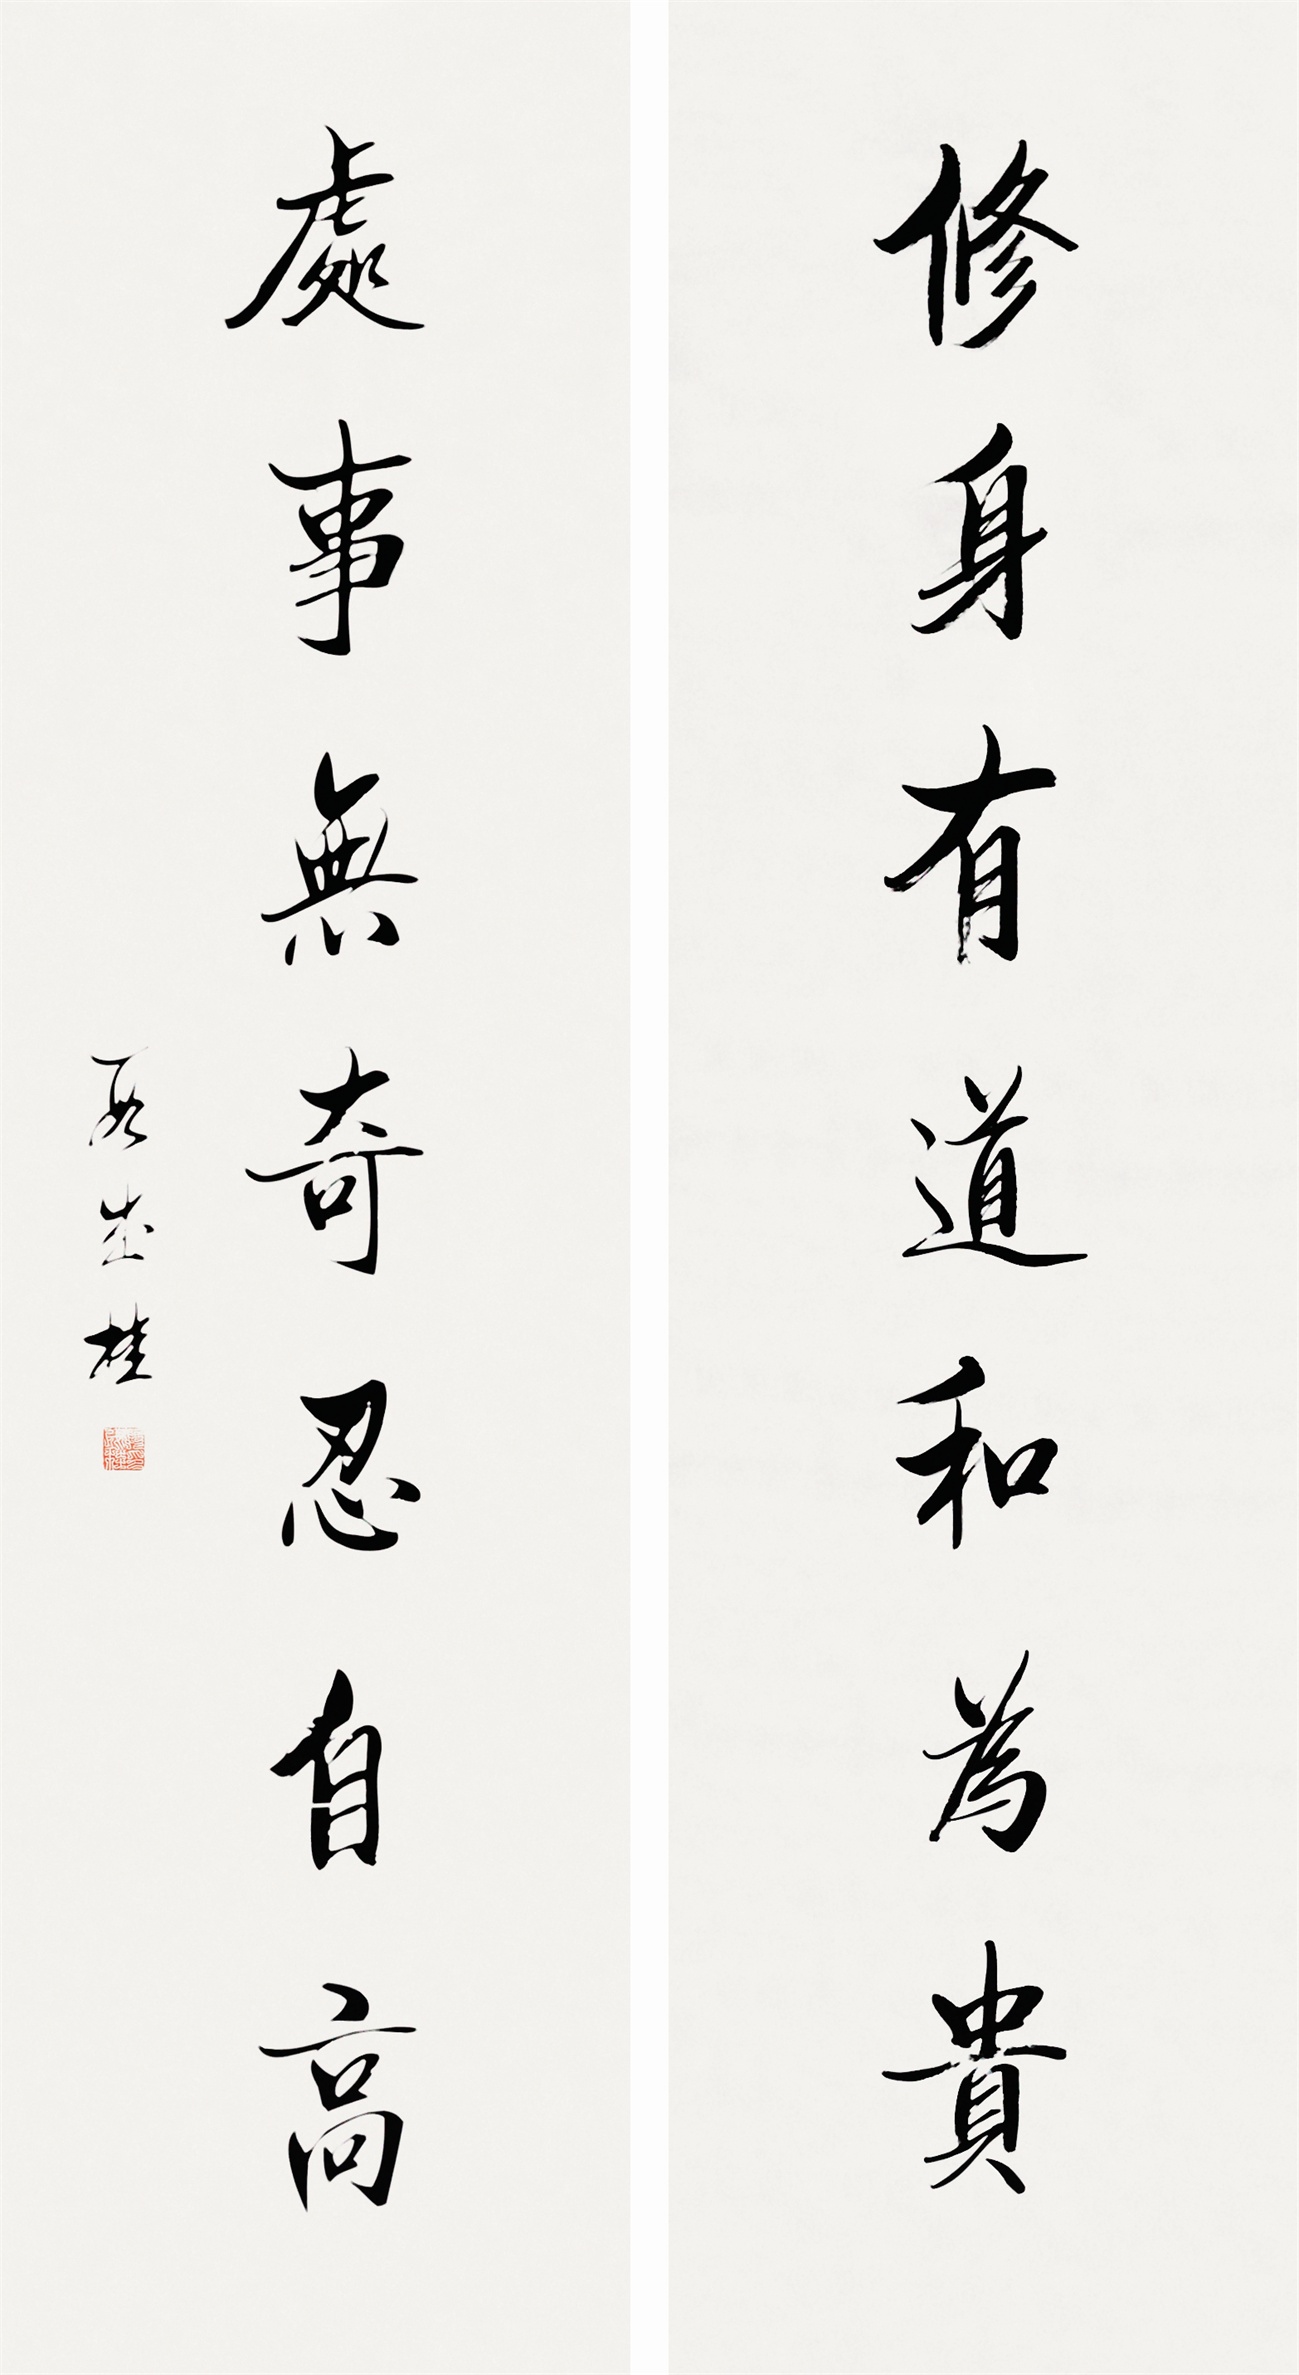 修身有道和為貴
處事無奇忍自高